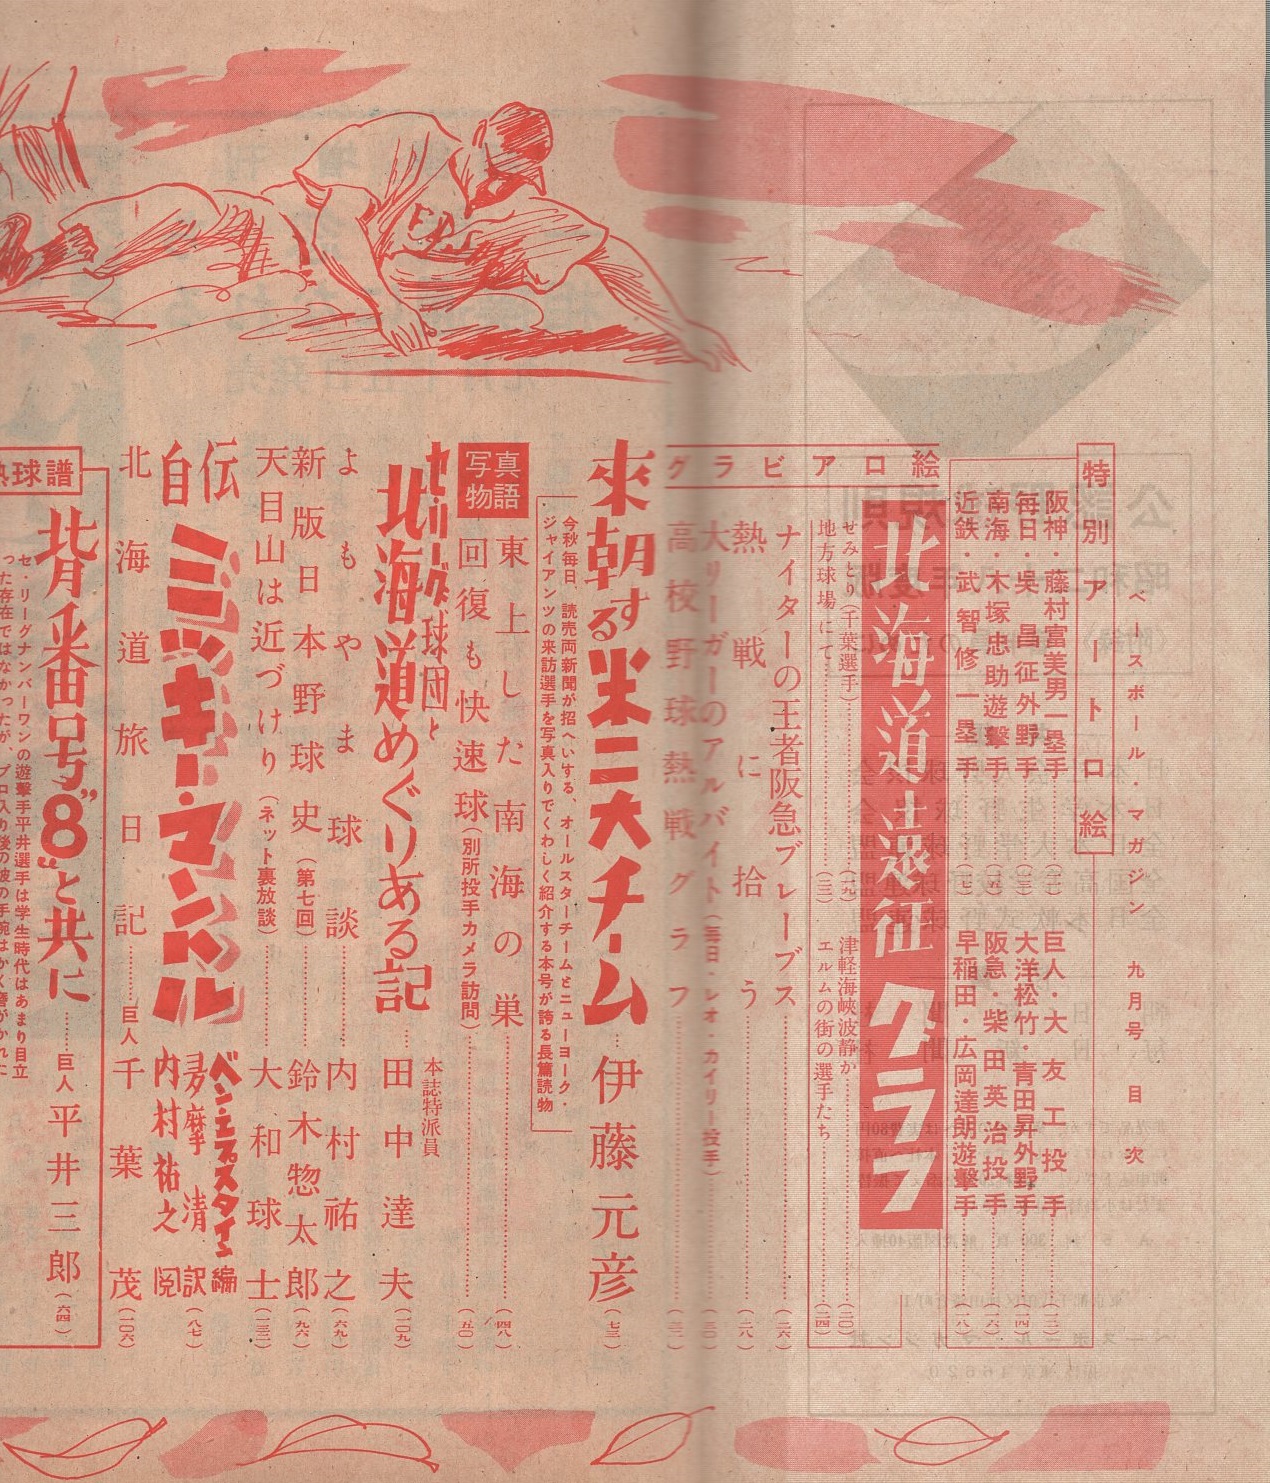 ベースボール・マガジン 九月号 目次
特別アート口絵
阪神・藤村富美男一塁手
毎日・呉昌征外野手
南海・木塚忠助遊撃手
近鉄・武智修一塁手
巨人・大友工投手……(一三)
大洋松竹・青田昇外野手……(一四)
阪急・柴田英治投手……(一六)
早稲田・広岡達朗遊撃手……(一八)
絵ロアビラグ
北海道遠征グラフ
せみとり(千葉選手)……(一九)
地方球場にて……(二二)
津軽海峡波静か……(二〇)
エルムの街の選手たち……(二四)
ナイターの王者阪急ブレーブス……(二六)
熱戦に拾う……(二八)
大リーガーのアルバイト(毎日・レオ・カイリー投手)……(三〇)
高校野球熱戦グラフ……(三二)
來朝する米二大チーム…伊藤元彦(七三)
今秋毎日、読売両新聞が招へいする、オールスターチームとニューヨーク・
ジャイアンツの来訪選手を写真入りでくわしく紹介する本号が誇る長篇読物
写真物語
東上した南海の巣……(四八)
回復も快速球(別所投手カメラ訪問)……(五〇)
セ・リーグ球団と
北海道めぐりある記…本誌特派員 田中達夫(一〇九)
よもやま球談……内村祐之(六九)
新版日本野球史(第七回)……鈴木惣太郎(九六)
天目山は近づけり(ネット裏放談)……大和球士(一三二)
自伝
ミッキー・マントル
ベン・エプスタイン編
多摩清訳(八七)
内村祐之閲
北海道旅日記……巨人 千葉茂(一〇六)
熱球譜
背番号"8"と共に……巨人 平井三郎(六四)
セ・リーグナンバーワンの遊撃手平井選手は学生時代はあまり目立
った存在ではなかったが、プロ入り後の彼の手腕はかく磨かれた